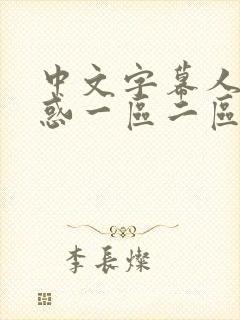 中文字幕人
惑一區二區
李長燦